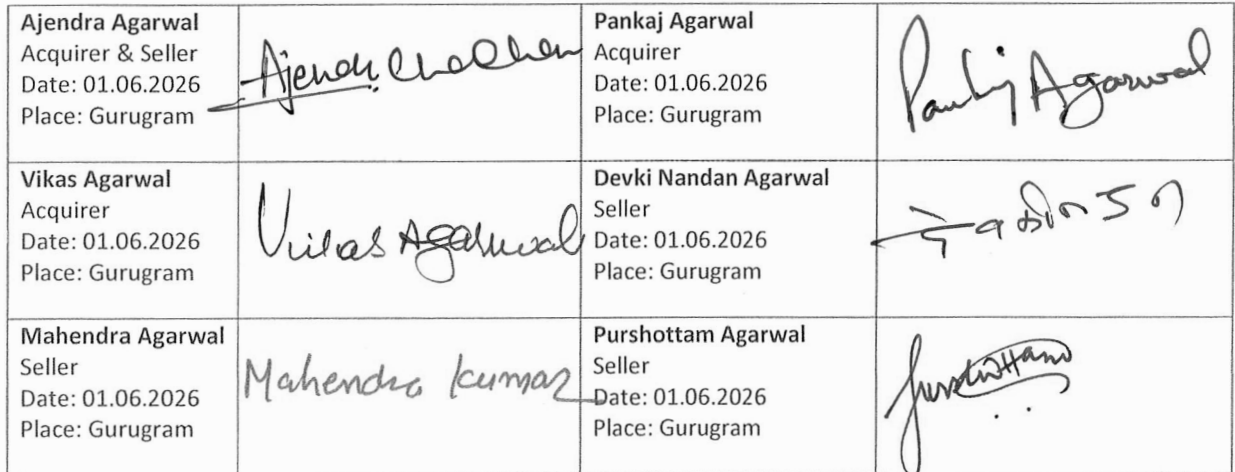 Ajendra Agarwal
Acquirer & Seller
Date: 01.06.2026
Place: Gurugram
Pankaj Agarwal
Acquirer
Date: 01.06.2026
Place: Gurugram
Pankaj Agarwal
Vikas Agarwal
Acquirer
Date: 01.06.2026
Place: Gurugram
Vikas Agarwal
Devki Nandan Agarwal
Seller
Date: 01.06.2026
Place: Gurugram
Mahendra Agarwal
Seller
Date: 01.06.2026
Place: Gurugram
Mahendra Kumar
Purshottam Agarwal
Seller
Date: 01.06.2026
Place: Gurugram